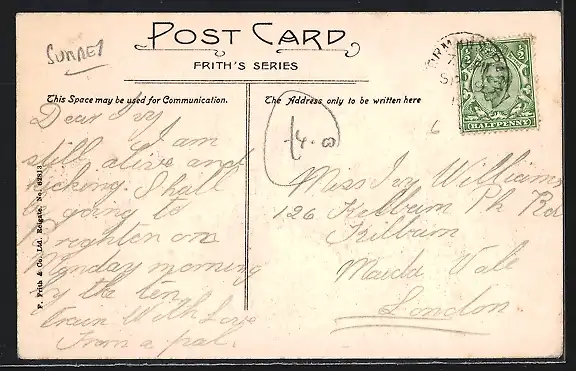 SURREY
POST CARD
FRITH'S SERIES
This Space may be used for Communication.
The Address only to be written here
HALFPENNY
£4.00
6
Dear Ivy I am
still alive and
kicking. Shall
be going to
Brighton on
Monday morning
by the ten
train With Love
From a pal.
Miss Ivy Williams
126 Kilburn Pk Rd
Kilburn
Maida Vale
London
F. Frith & Co. Ltd. Reigate. No. 62813